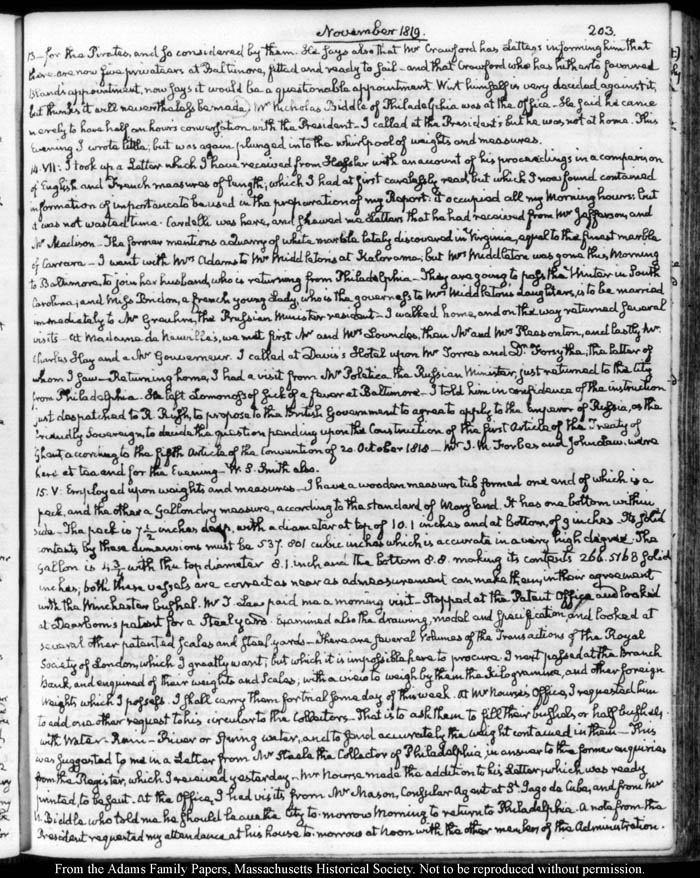 November 1819.
203.
B— for the Pirates, and so considered by them. He says also that Mr Crawford has Letters informing him that
there are now five privateers at Baltimore, fitted and ready to sail— and that Crawford who has hitherto favoured
appointment, now says it would be a questionable appointment. Wirt himself is very decided against it,
but thinks it will nevertheless be made. Mr Nicholas Biddle of Philadelphia was at the Office— He said he came
merely to have half an hours conversation with the President— I called at the President's but he was not at home. This
Evening I wrote little; but was again plunged into the whirlpool of weights and measures.
14. VII: I took up a Letter which I have received from Hassler with an account of his proceedings in a comparison
of English and French measures of length, which I had at first carelessly read, but which I now found contained
information of importance to be used in the preparation of my Report. It occupied all my Morning hours: but
it was not wasted time. Cardelli was here, and shewed me Letters that he had received from Mr Jefferson, and
Mr Madison— The former mentions a Quarry of white marble lately discovered in Virginia, equal to the finest marble
of Carrara— I went with Mrs Adams to Mr Middleton's at Kalorama; but Mrs Middleton was gone this Morning
to Baltimore, to join her husband, who is returning from Philadelphia— They are going to pass the Winter in South
Carolina; and Miss a french young Lady, who is the governess to Mrs Middleton's daughters, is to be married
immediately to Mr Greuhm, the Prussian Minister resident— I walked home, and on the way returned several
visits— At Madame de Neuville's, we met first Mr and Mrs Lowndes, then Mr and Mrs Pleasonton, and lastly Mr.
Charles Hay and a Mr Gouverneur. I called at Davis's Hotel upon Mr Torres and Dr. Forsythe; the latter of
whom I saw— Returning home, I had a visit from Mr Poletica the Russian Minister, just returned to the City
from Philadelphia. He left Lomonosof sick of a fever at Baltimore— I told him in confidence of the instruction
just despatched to R. Rush, to propose to the British Government to agree to apply to the Emperor of Russia, as the
Friendly Sovereign, to decide the question pending upon the Construction of the first Article of the Treaty of
Ghent, according to the fifth Article of the Convention of 20 October 1818— Mr J. M. Forbes and John Law, were
here at tea and for the Evening— W. S. Smith also.
15. V: Employed upon weights and measures— I have a wooden measure tub formed one end of which is a
peck, and the other a Gallon dry measure, according to the standard of Maryland. It has one bottom within
side— The peck is 7½ inches deep, with a diameter at top of 10.1 inches and at bottom, of 9 inches. Its solid
contents by these dimensions must be 537.801 cubic inches which is accurate in a very high degree. The
Gallon is with the top diameter 8.1 inch and the bottom 8.8. making its contents 266.5168 solid
inches; both these vessels are correct as near as admeasurement can make them, in their agreement
with the Winchester bushel. Mr T. Law paid me a morning visit— Stopped at the Patent Office, and looked
at Dearborn's patent for a Steel yard. Examined also the drawing, model and specification and looked at
several other patented Scales and steel yards— There are several Volumes of the Transactions of the Royal
Society of London, which I greatly want; but which it is impossible here to procure. I next passed at the Branch
Bank, and enquired of their weights and Scales; with a view to weigh by them the Kilogramme, and other foreign
weights which I possess. I shall carry them for trial some day of this week. At Mr Nourse's Office, I requested him
to add one other request to his circular to the Collectors— That is to ask them to fill their bushels or half bushels,
with Water— Rain— River or Spring water, and to send accurately the weight contained in them— This
was suggested to me in a Letter from Mr Steele the Collector of Philadelphia, in answer to the former enquiries
from the Register, which I received yesterday— Mr Nourse made the addition to his Letter, which was ready
printed to be sent. At the Office, I had visits from Mr Mason, Consular Agent at St Iago de Cuba, and from Mr
N. Biddle who told me he should leave the City to-morrow Morning to return to Philadelphia. A note from the
President requested my attendance at his house to-morrow at Noon with the other members of the Administration.
From the Adams Family Papers, Massachusetts Historical Society. Not to be reproduced without permission.